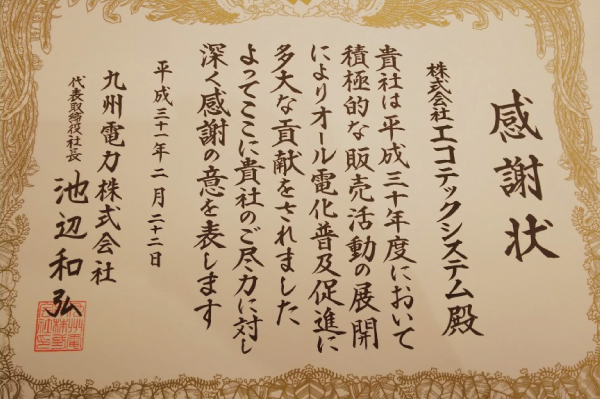 感謝状
株式会社エコテックシステム殿
貴社は平成三十年度において
積極的な販売活動の展開
によりオール電化普及促進に
多大な貢献をされました
よってここに貴社のご尽力に対し
深く感謝の意を表します
平成三十一年二月二十二日
九州電力株式会社
代表取締役社長 池辺和弘